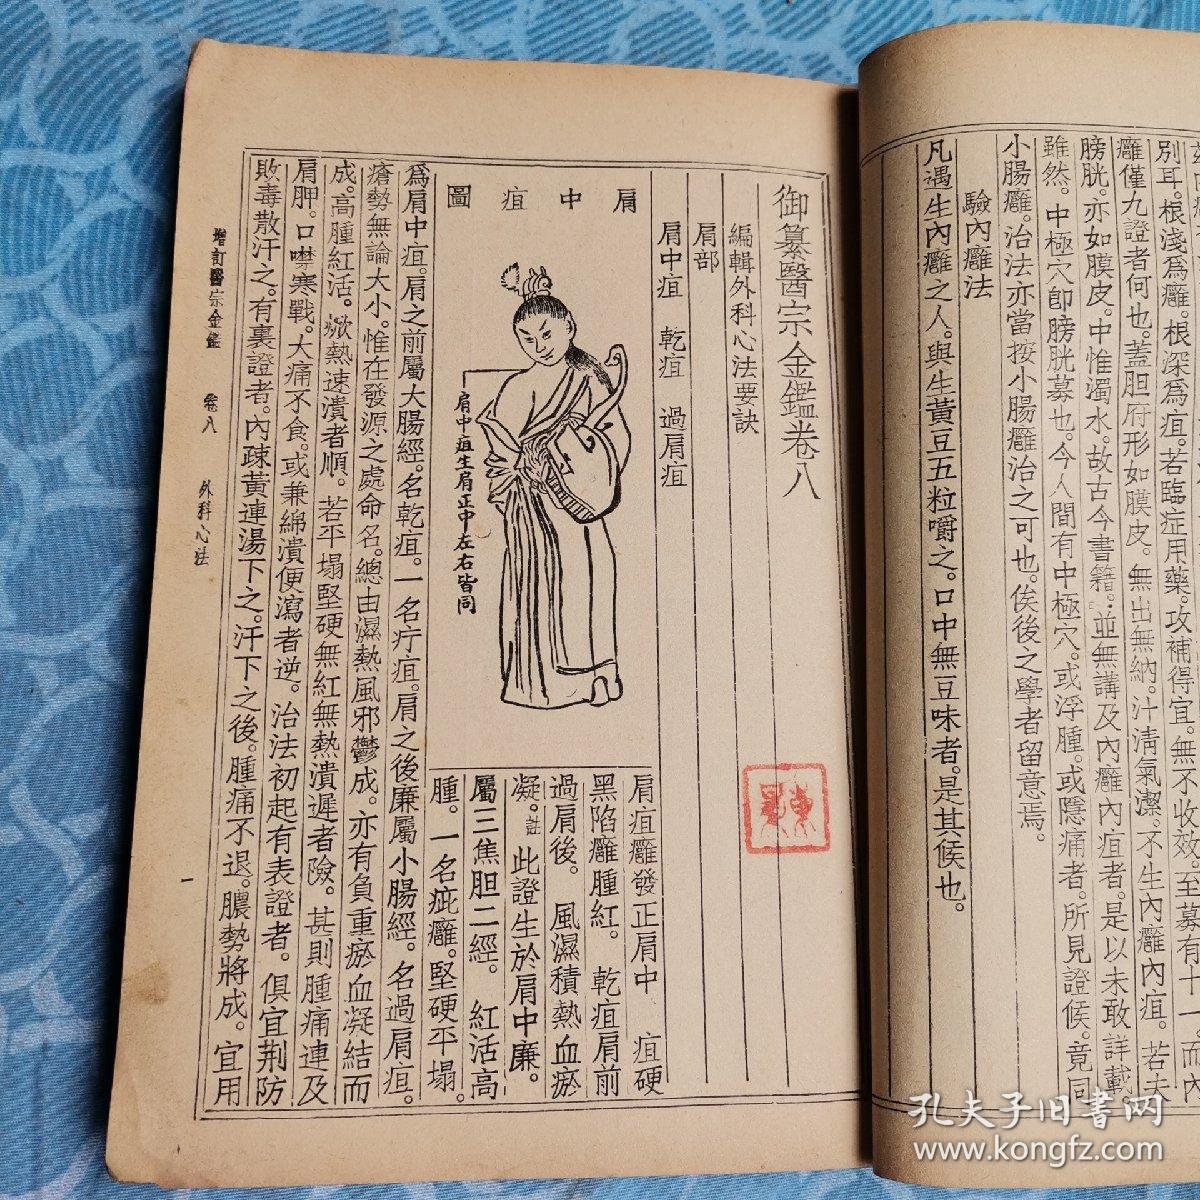 別耳。根淺爲癰。根深爲疽。若臨症用藥。攻補得宜。無不收效。至募有十一。而內
癰僅九證者何也。蓋胆府形如膜皮。無出無納。汁淸氣潔。不生內癰內疽。若夫
膀胱。亦如膜皮。中惟濁水。故古今書籍。並無講及內癰內疽者。是以未敢詳載。
雖然。中極穴卽膀胱募也。今人間有中極穴。或浮腫。或隱痛者。所見證候。竟同
小腸癰。治法亦當按小腸癰治之可也。俟後之學者留意焉。
驗內癰法
凡遇生內癰之人。與生黃豆五粒嚼之。口中無豆味者。是其候也。
御纂醫宗金鑑卷八
編輯外科心法要訣
肩部
肩中疽 乾疽 過肩疽
肩中疽圖
肩中疽生肩正中左右皆同
肩疽癰發正肩中 疽硬
黑陷癰腫紅。 乾疽肩前
過肩後。 風濕積熱血瘀
凝。註 此證生於肩中廉。
屬三焦胆二經。 紅活高
腫。一名疵癰。堅硬平塌。
爲肩中疽。肩之前屬大腸經。名乾疽。一名疔疽。肩之後廉屬小腸經。名過肩疽。
瘡勢無論大小。惟在發源之處命名。總由濕熱風邪鬱成。亦有負重瘀血凝結而
成。高腫紅活。焮熱速潰者順。若平塌堅硬無紅無熱潰遲者險。甚則腫痛連及
肩胛。口噤寒戰。大痛不食。或兼綿潰便瀉者逆。治法初起有表證者。俱宜荆防
敗毒散汗之。有裏證者。內疎黃連湯下之。汗下之後。腫痛不退。膿勢將成。宜用
增訂醫宗金鑑 卷八 外科心法 一
孔夫子旧书网
www.kongfz.com